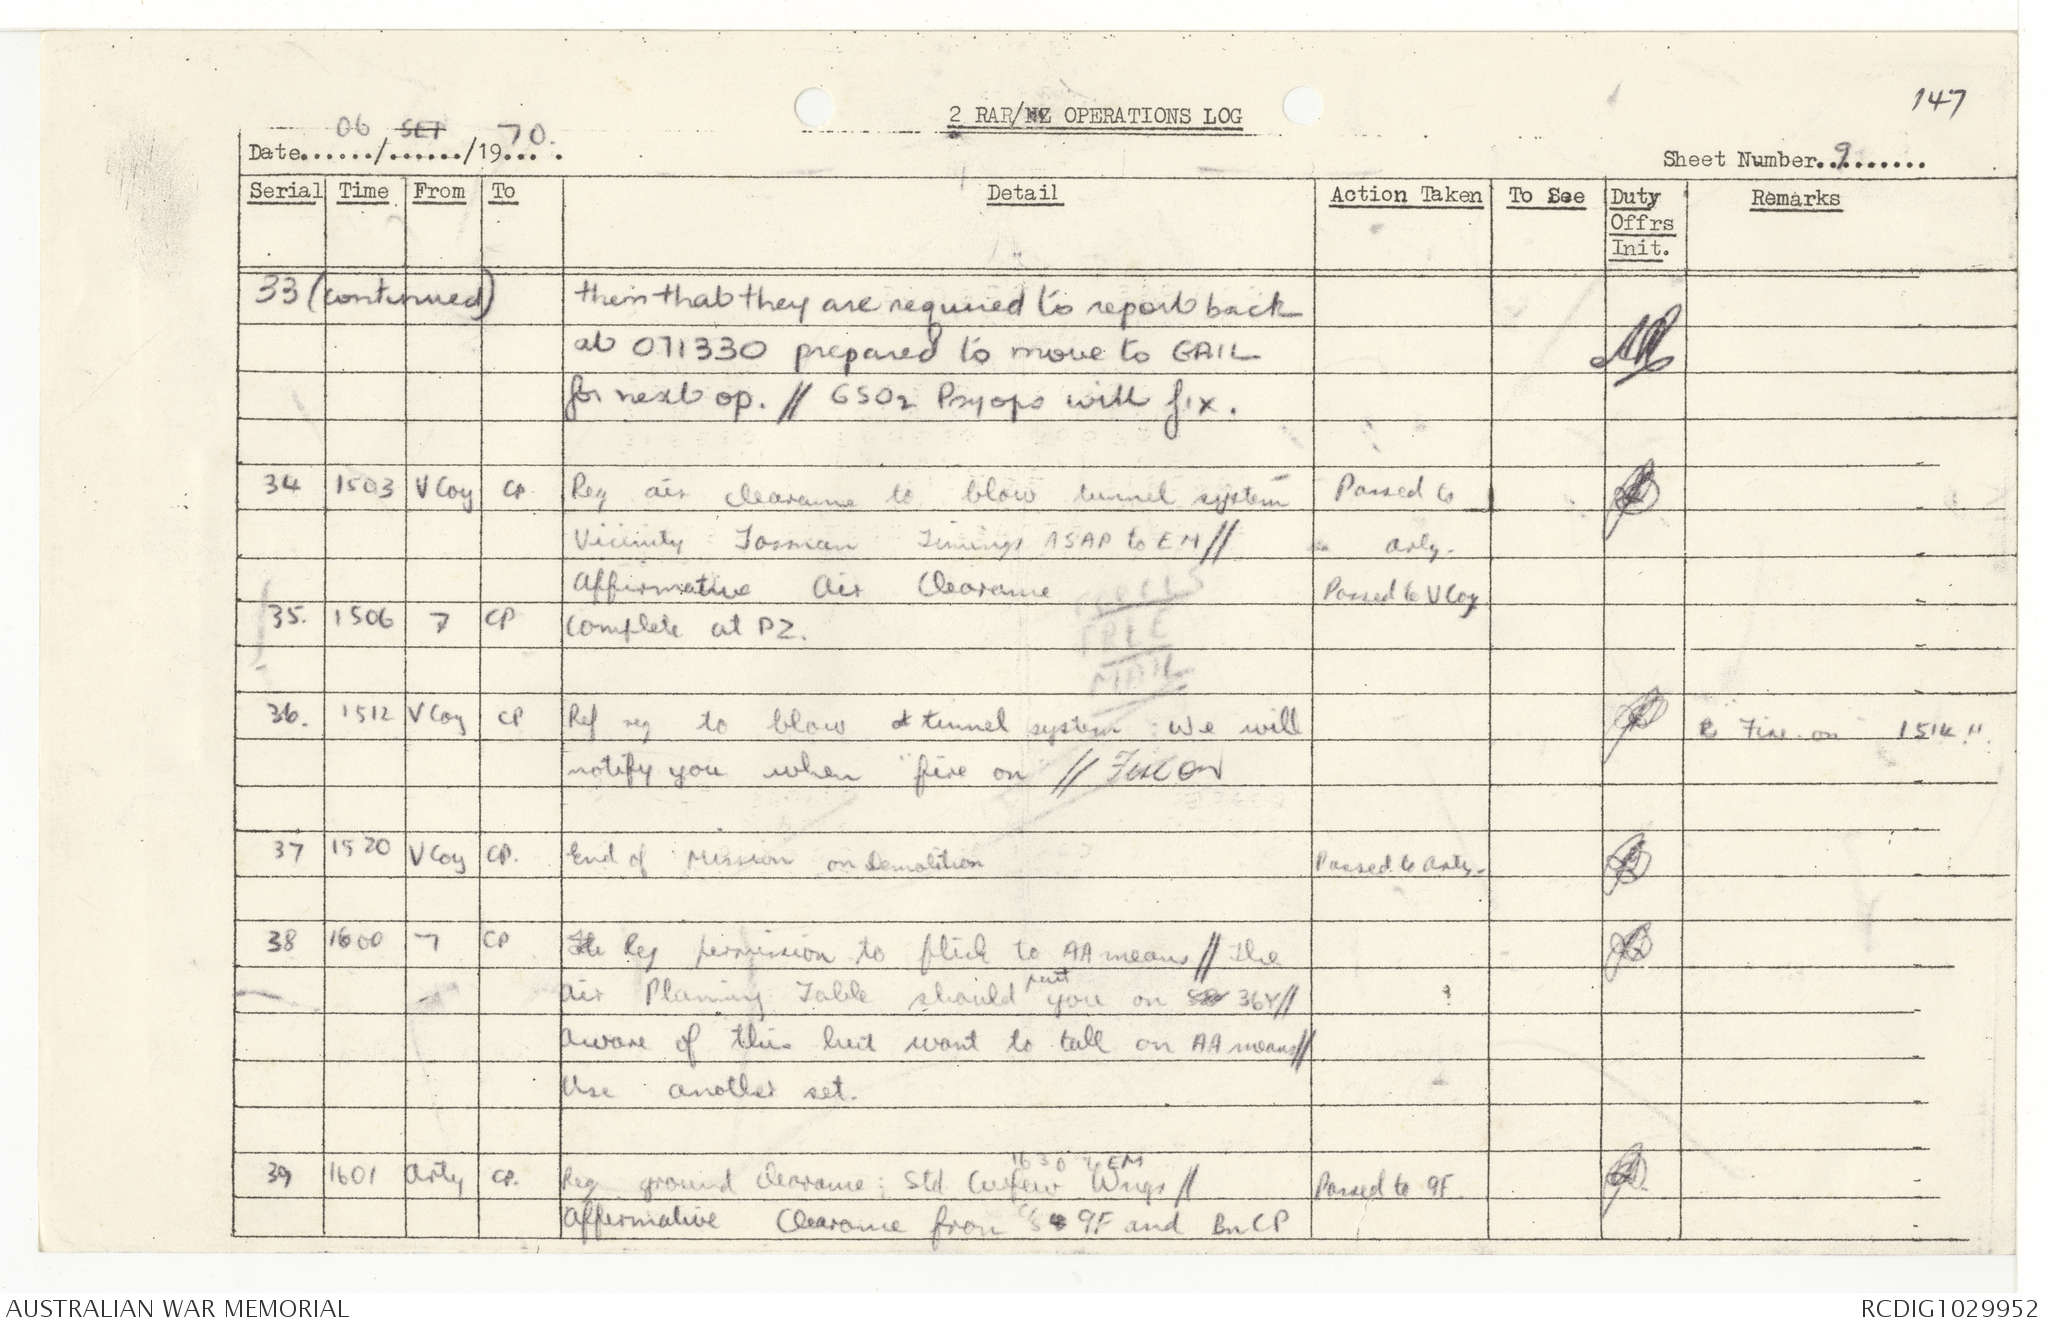 147
2 RAR/NZ OPERATIONS LOG
Date 06/SEP/1970.
Sheet Number 9
Serial Time From To Detail Action Taken To See Duty Offrs Init. Remarks
33 (continued) them that they are required to report back
at 071330 prepared to move to GAIL
for next op. // GSO2 Psyops will fix.
34 1503 V Coy CP Req air clearance to blow tunnel system Passed to
Vicinity Tasman Timings ASAP to EM // arty.
Affirmative Air Clearance Passed to V Coy
35. 1506 7 CP Complete at PZ.
36. 1512 V Coy CP Ref req to blow tunnel system. We will Fire on 1514
notify you when "fire on" // Fire ON
37 1520 V Coy CP. End of Mission on Demolition Passed to arty.
38 1600 7 CP Req permission to flick to AA means // The
Air Planning Table should put you on 36Y //
Aware of this but want to talk on AA means //
Use another set.
39 1601 Arty CP. Req ground clearance; Std Curfew Wngs // Passed to 9F
1630 to EM
Affirmative Clearance from 9F and Bn CP
AUSTRALIAN WAR MEMORIAL
RCDIG1029952